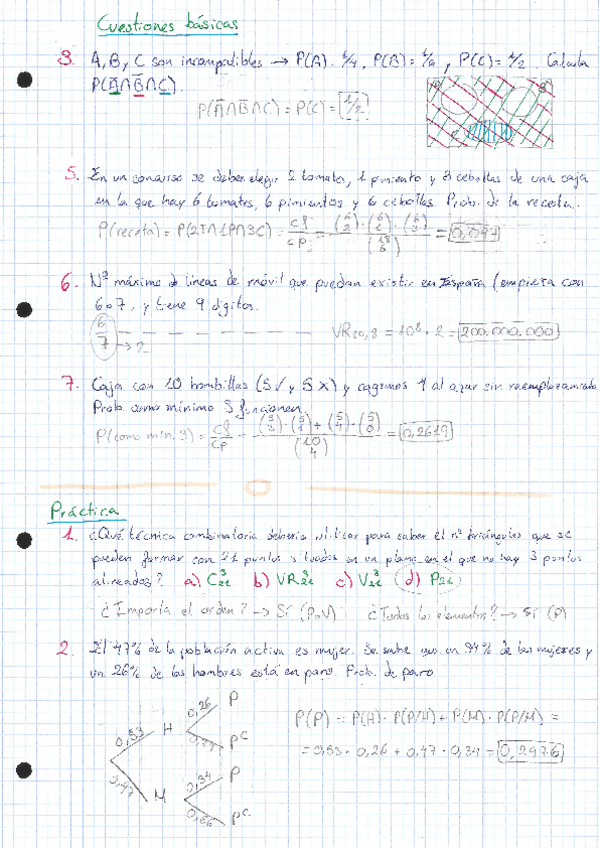 Cuestiones básicas
3. A, B y C son incompatibles → P(A) = 1/4, P(B) = 1/4, P(C) = 1/2. Calcula
P(A̅∩B̅∩C).
P(A̅∩B̅∩C) = P(C) = 1/2
5. En un concurso se deben elegir 2 tomates, 1 pimiento y 3 cebollas de una caja
en la que hay 6 tomates, 6 pimientos y 6 cebollas. Prob. de la receta.
P(receta) = P(2T∩1P∩3C) = cf/cp = (6 2)·(6 1)·(6 3) / (18 6) = 0,097
6. Nº máximo de líneas de móvil que puedan existir en España (empieza con
6 o 7, y tiene 9 dígitos.
6/7 → 2 VR10,8 = 10⁸ · 2 = 200.000.000
7. Caja con 10 bombillas (5 √ y 5 X) y cogemos 4 al azar sin reemplazamiento
Prob. como mínimo 3 funcionen.
P(como mín. 3) = cf/cp = (5 3)·(5 1) + (5 4)·(5 0) / (10 4) = 0,2619
Práctica
1. ¿Qué técnica combinatoria debería utilizar para saber el nº triángulos que se
pueden formar con 21 puntos situados en un plano en el que no hay 3 puntos
alineados? a) C³21 b) VR³21 c) V³21 d) P21
¿Importa el orden? → Sí (P o V) ¿Todos los elementos? → Sí (P)
2. El 47% de la población activa es mujer. Se sabe que un 34% de las mujeres y
un 26% de los hombres está en paro. Prob. de paro
0,53 H 0,26 P
0,74 PC
0,47 M 0,34 P
0,66 PC
P(P) = P(H) · P(P/H) + P(M) · P(P/M) =
= 0,53 · 0,26 + 0,47 · 0,34 = 0,2976